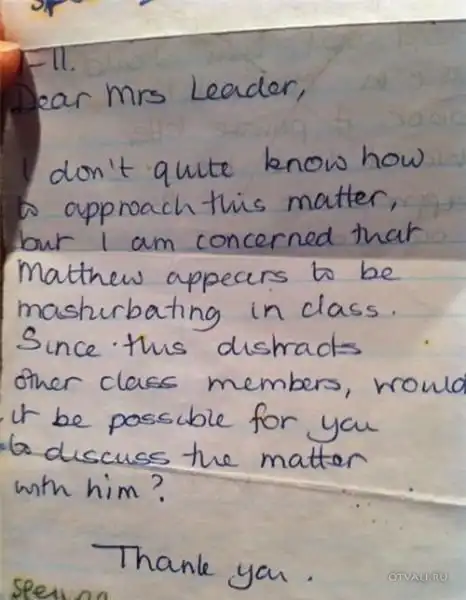 1-11.
Dear Mrs Leader,
I don't quite know how
to approach this matter,
but I am concerned that
Matthew appears to be
masturbating in class.
Since this distracts
other class members, would
it be possible for you
to discuss the matter
with him?
Thank you.
OTVALI.RU